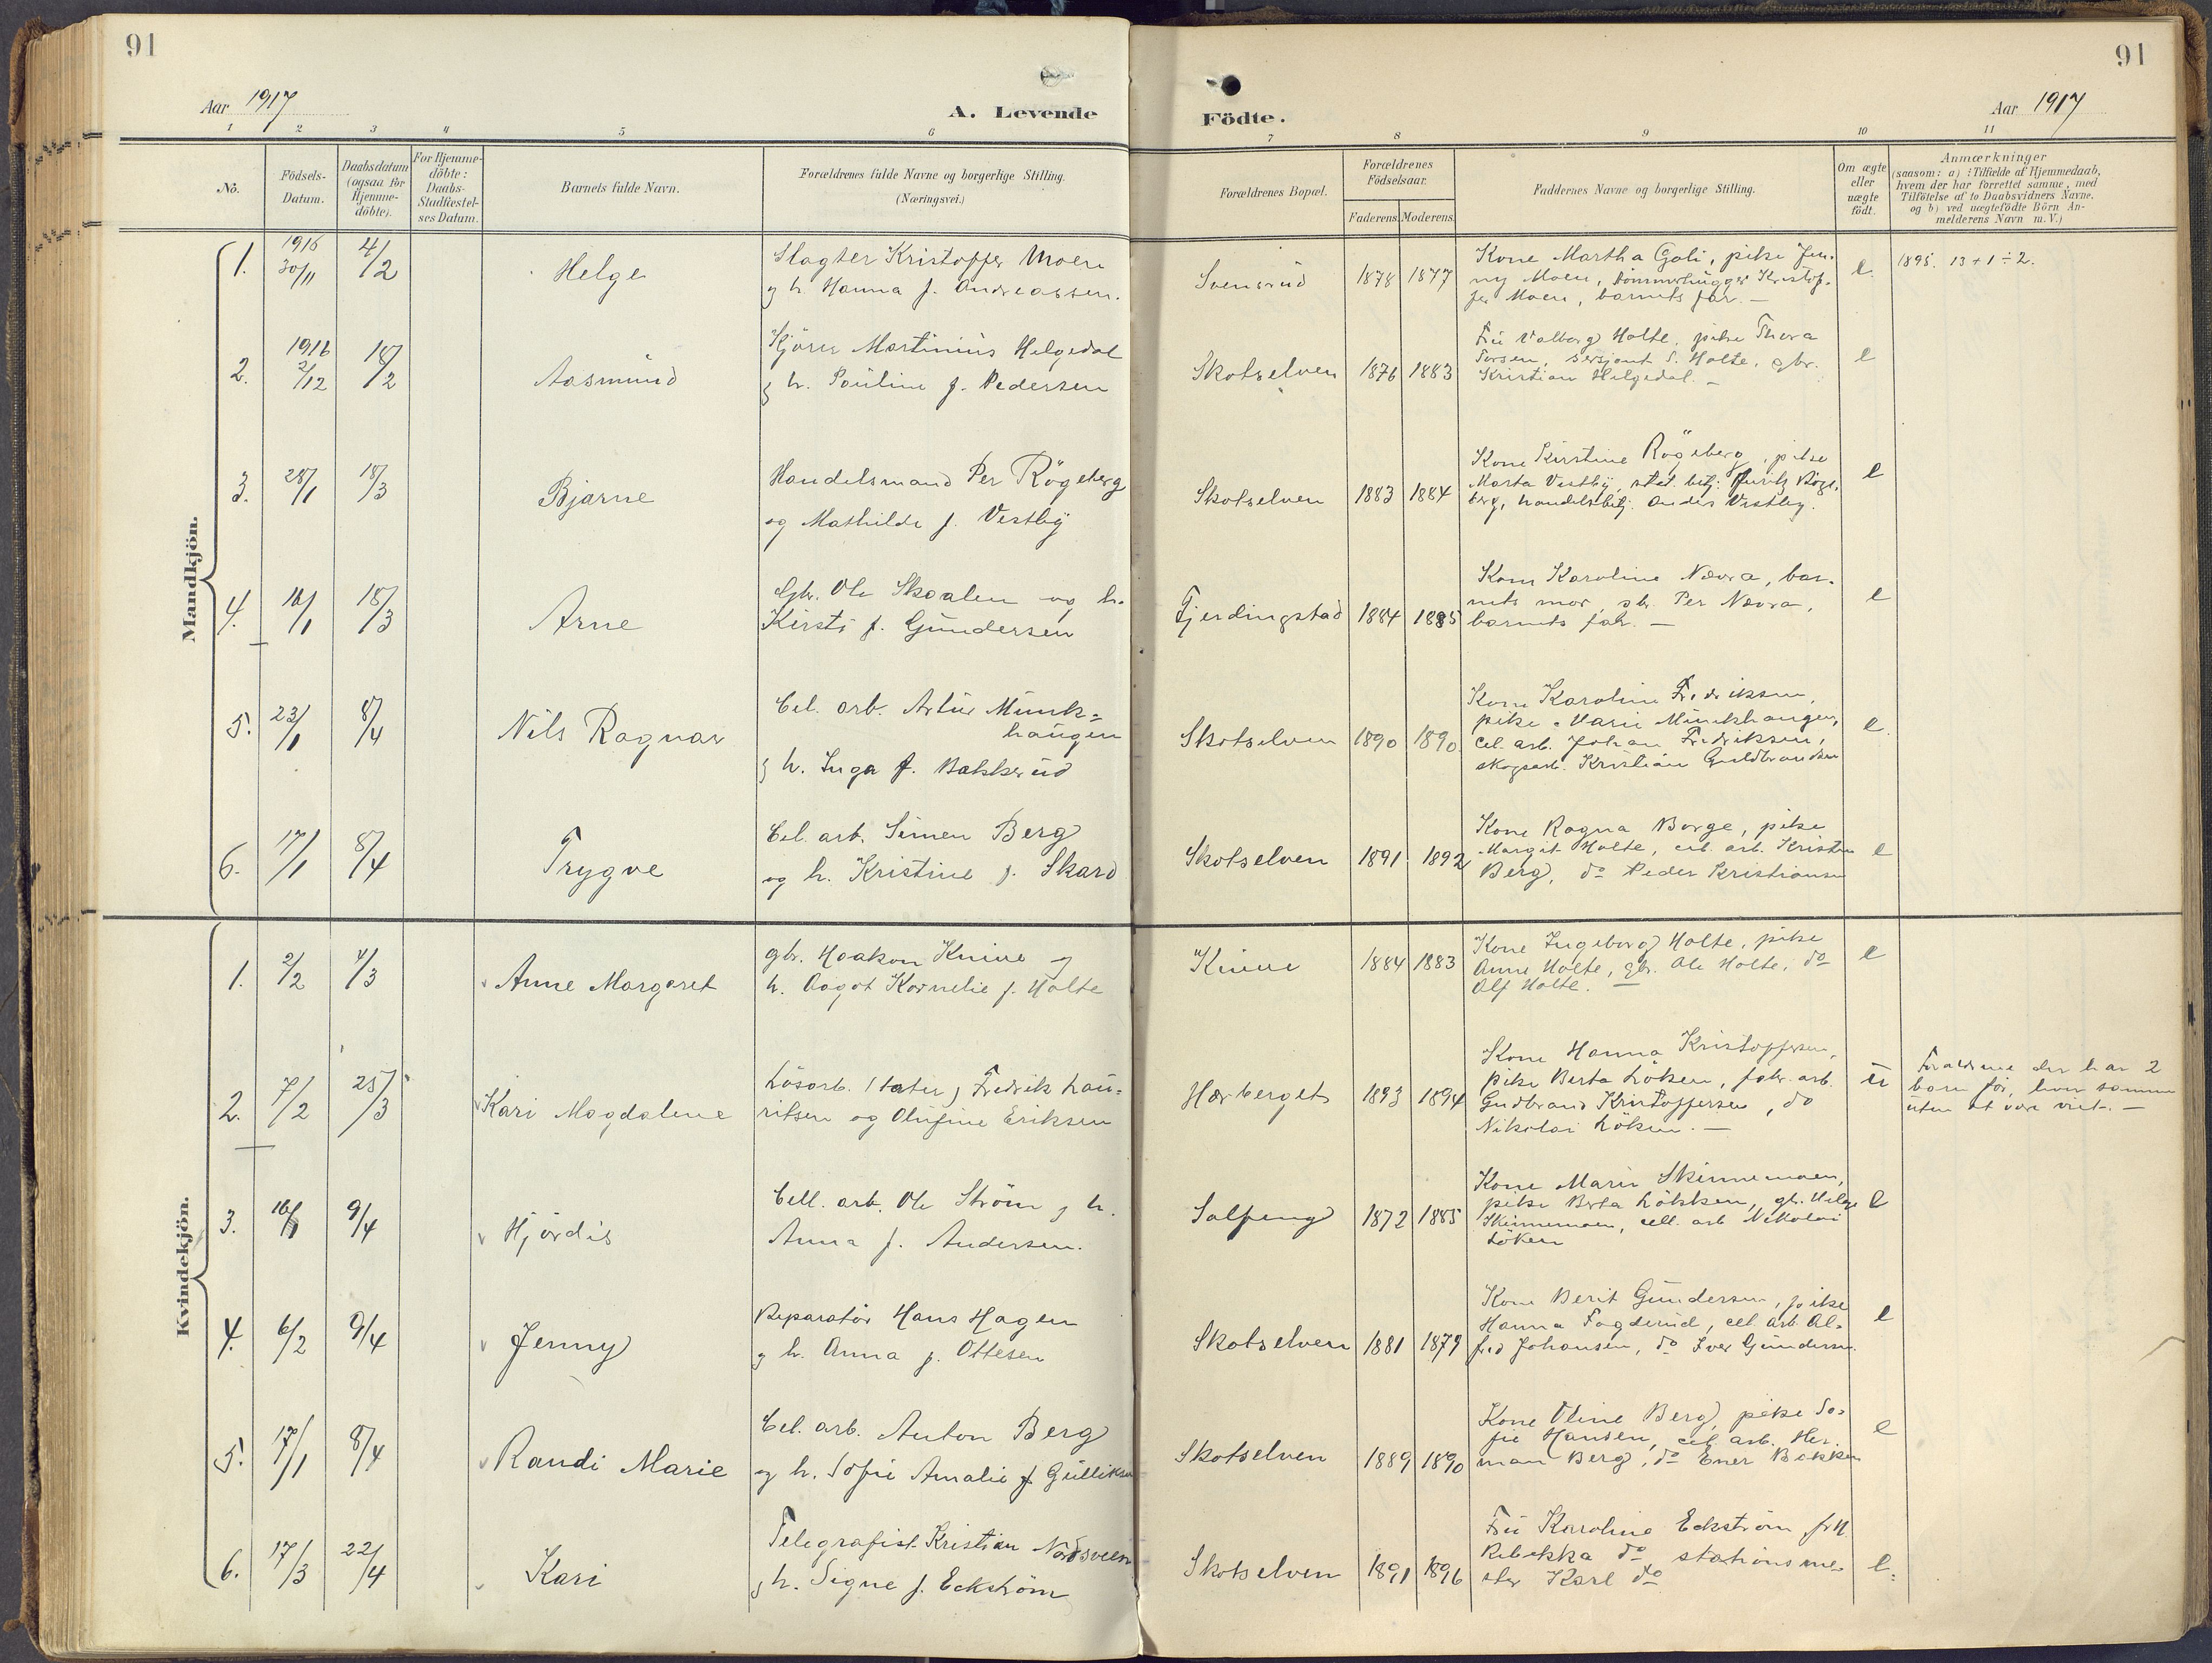 91
91
Aar 1917
A. Levende
Födte.
Aar 1917
1 2 3 4 5 6 7 8 9 10 11
No.
Födsels-
Datum.
Daabsdatum
(ogsaa for
Hjemme-
döbte).
For Hjemme-
döbte:
Daabs-
Stadfæstel-
ses Datum.
Barnets fulde Navn.
Forældrenes fulde Navne og borgerlige Stilling.
(Næringsvei.)
Forældrenes Bopæl.
Forældrenes
Födselsaar.
Faderens.
Moderens.
Faddernes Navne og borgerlige Stilling.
Om ægte
eller
uægte
födt.
Anmærkninger
(saasom: a) i Tilfælde af Hjemmedaab,
hvem der har forrettet samme, med
Tilföielse af to Daabsvidners Navne,
og b) ved uægtefödte Börn An-
melderens Navn m. V.)
Mandkjön.
1.
1916
30/11
4/2
Helge
Slagter Kristoffer Moen
og h. Hanna f. Andreassen.
Svensrud
1878
1877
Kone Martha Goli, pike Jen-
ny Moen, tömmerhugger Kristof-
fer Moen, barnets far. —
e.
1895. 13 + 1 ÷ 2.
2.
1916
2/12
18/2
Aasmund
Kjörer Martinius Helgedal
g h. Pauline f. Pedersen
Skotselven
1876
1883
Fru Valborg Holte, pike Thora
sersjant S. Holte, gbr.
Kristian Helgedal. —
e
3.
28/1
18/3
Bjarne
Handelsmand Per Rögeberg
og Mathilde f. Vestby
Skotselven
1883
1884
Kone Kirstine Rögeberg, pike
Marta Vestby, Röge-
berg, handelsbetj. Anders Vestby.
e
4.
16/1
18/3
Arne
Gbr. Ole Skaalen og h.
Kirsti f. Gundersen
Fjerdingstad
1884
1885
Kone Karoline Nævra, bar-
nets mor, gbr. Per Nævra,
barnets far. —
e
5.
23/1
8/4
Nils Ragnar
Cel. arb. Artur Munk-
haugen
g h. Inga f. Bakkerud
Skotselven
1890
1890.
Kone Karoline Fredriksen,
pike Marie Munkhaugen,
cel. arb. Johan Fredriksen,
skogsarb. Kristian Guldbrandsen
e.
6.
17/1
8/4
Trygve
Cel. arb. Simen Berg
og h. Kristine f. Skard
Skotselven
1891
1892
Kone Ragna Borge, pike
Margit Holte, cel. arb. Kristen
Berg, do Peder Kristiansen
e
Kvindekjön.
1.
2/2
4/3
Anne Margaret
gbr. Haakon Knive g
h. Aagot Kornelie f. Holte
Knive
1884
1883
Kone Ingeborg Holte, pike
Anne Holte, gbr. Ole Holte, do
Alf Holte. —
e
2.
7/2
25/3
Kari Magdalene
Lösarb. (tater) Fredrik Lau-
ritsen og Olufine Eriksen
Hærberget
1893
1894
Kone Hanna Kristoffersen,
pike Berta Löken, fabr. arb.
Gudbrand Kristoffersen, do
Nikolai Löken. —
u
Forældrene der har 2
barn för, lever sammen
uten at være viet. —
3.
16/1
9/4
Hjördis
Cell. arb. Ole Ström g h.
Anna f. Andersen.
Solfeng
1872
1885
Kone Marie Skinnemoen,
pike Berta Lökken, gbr. Helge
Skinnemoen, cell. arb. Nikolai
Löken
e
4.
6/2
9/4
Jenny
Reparatör Hans Hagen
g h. Anna f. Ottesen
Skotselven
1881
1879
Kone Berit Gundersen, pike
Hanna Fogderud, cel. arb. Al-
fred Johansen, do Iver Gundersen.
e
5.
17/1
8/4
Randi Marie
Cel. arb. Anton Berg
og h. Sofie Amalie f. Gulliksen
Skotselven
1889
1890
Kone Oline Berg, pike So-
fie Hansen, cel. arb. Her-
man Berg, do Ener Bakken
e
6.
17/3
22/4
Kari
Telegrafist Kristian Nordsveen
g h. Signe f. Eckström
Skotselven
1891
1896
Fru Karoline Eckström, frk
Rebekka do, stationsme-
ster Karl do
e.